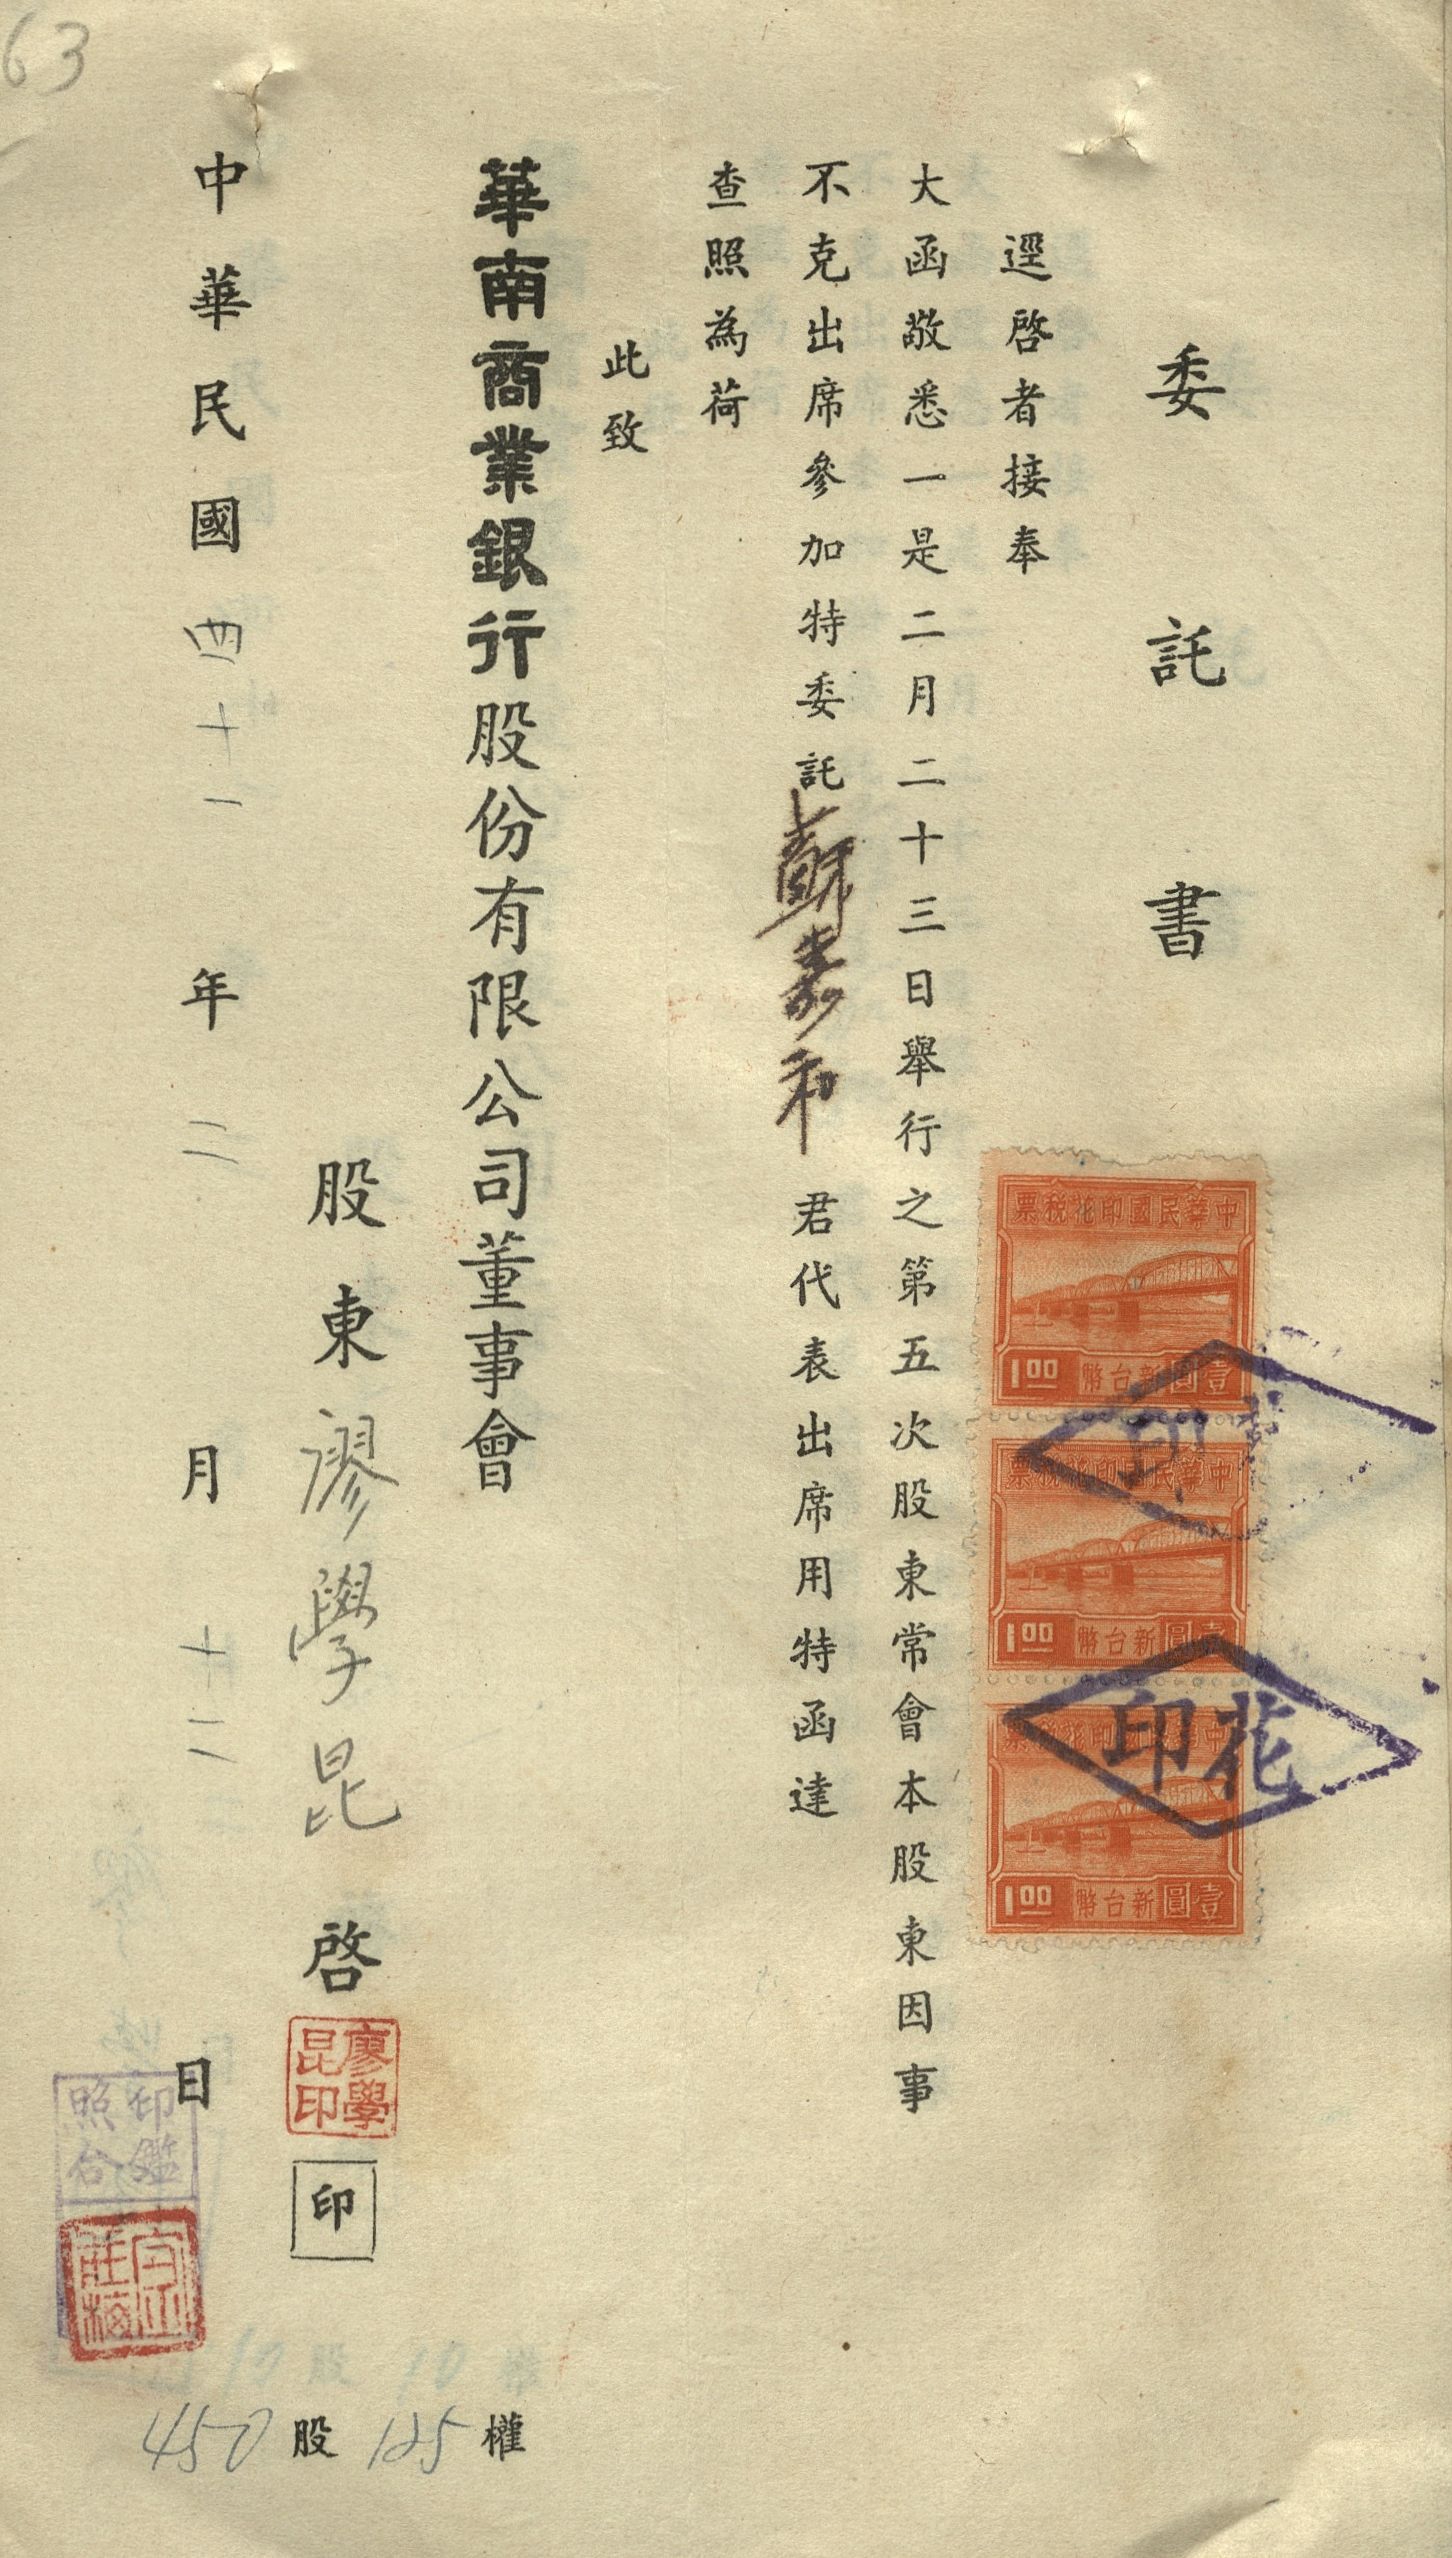 63
委託書
逕啓者接奉
大函敬悉一是二月二十三日舉行之第五次股東常會本股東因事
不克出席參加特委託蘇嘉和君代表出席用特函達
查照為荷
此致
華南商業銀行股份有限公司董事會
股東廖學昆啓印
廖學昆印
中華民國四十一年二月十二日
印鑑照合
450股125權
中華民國印花稅票
壹圓新台幣
1.00
中華民國印花稅票
壹圓新台幣
1.00
中華民國印花稅票
壹圓新台幣
1.00
花印
花印